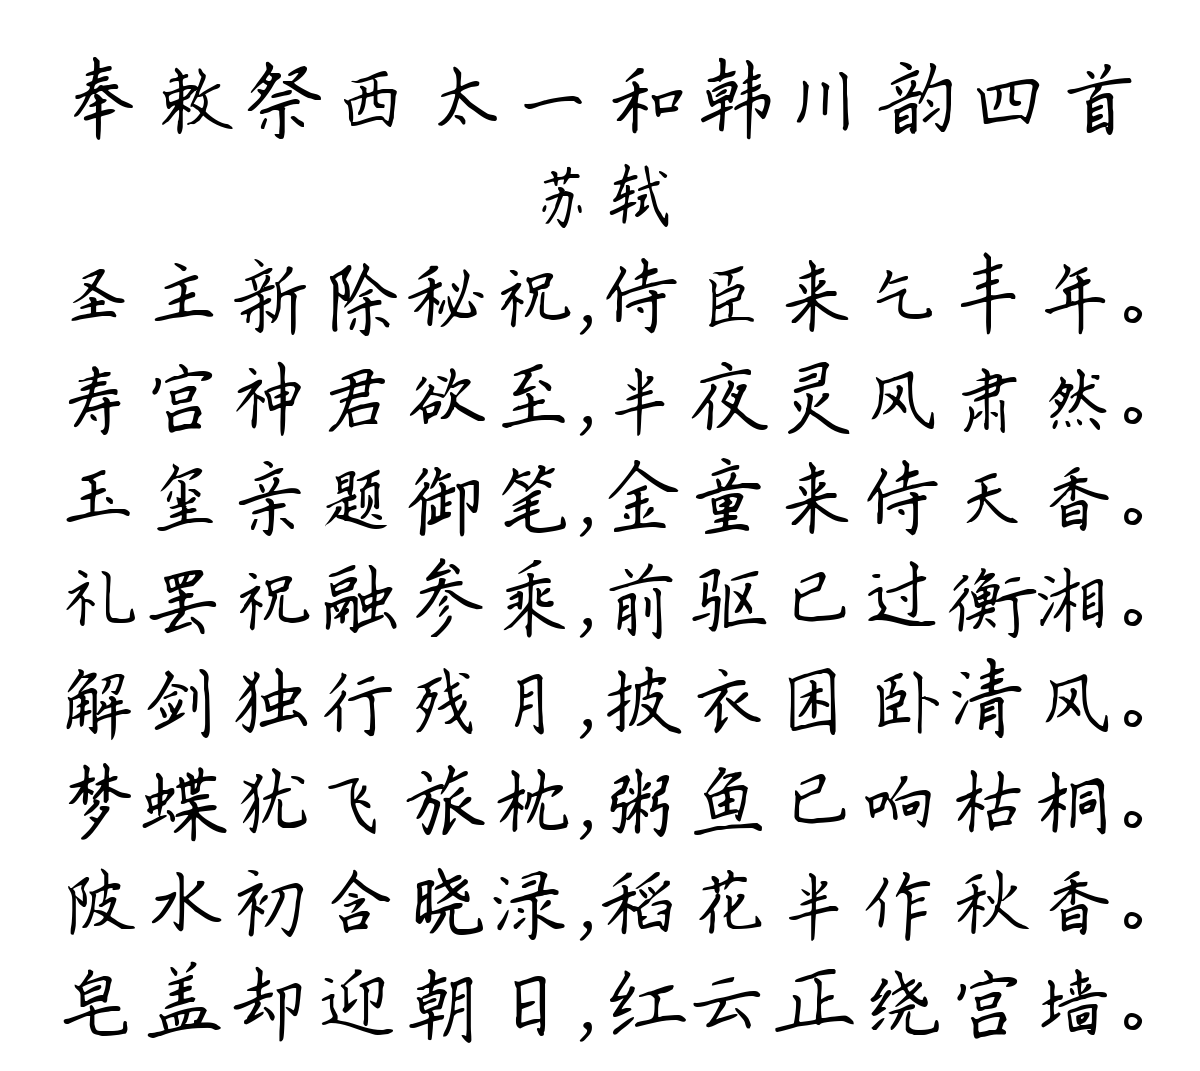 奉敕祭西太一和韩川韵四首
苏轼
圣主新除秘祝,侍臣来乞丰年。
寿宫神君欲至,半夜灵风肃然。
玉玺亲题御笔,金童来侍天香。
礼罢祝融参乘,前驱已过衡湘。
解剑独行残月,披衣困卧清风。
梦蝶犹飞旅枕,粥鱼已响枯桐。
陂水初含晓渌,稻花半作秋香。
皂盖却迎朝日,红云正绕宫墙。